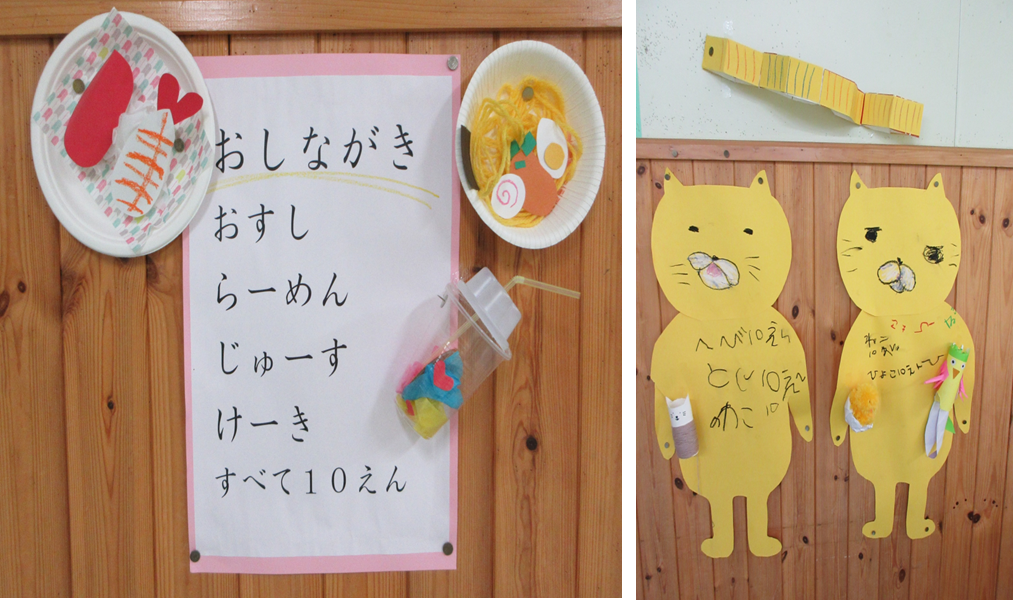 おしながき
おすし
らーめん
じゅーす
けーき
すべて１０えん
へび10えん
とり10えん
ねこ10
ねこ
10えん
ひよこ10えん